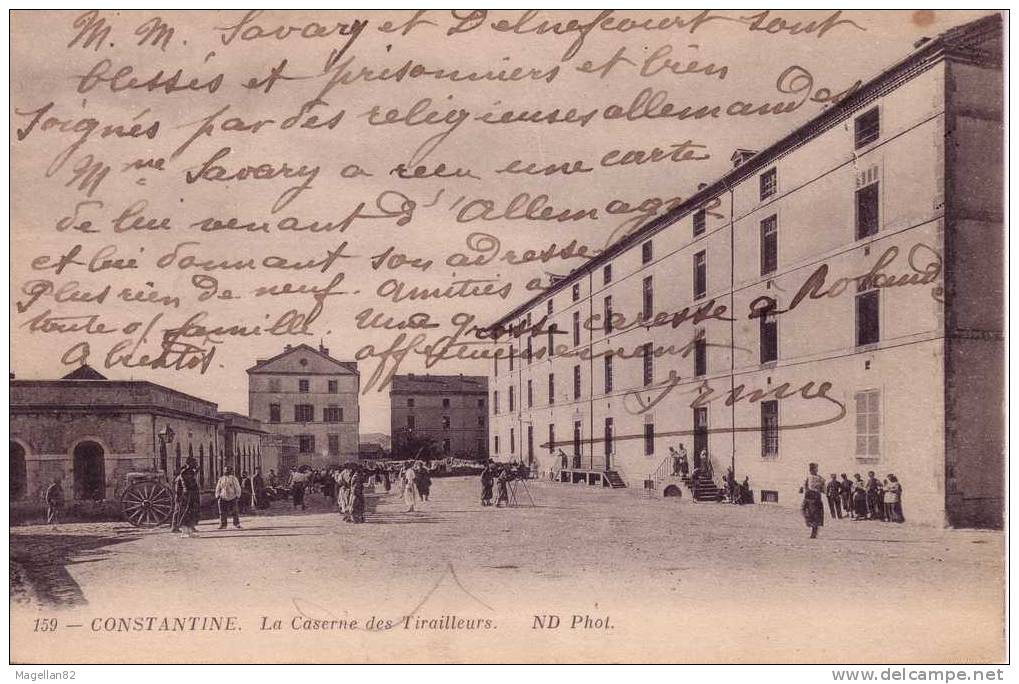 M. M. Savary et Delnefcourt sont
blessés et prisonniers et bien
soignés par des religieuses allemandes
Mme Savary a reçu une carte
de lui venant d'Allemagne
et lui donnant son adresse
Plus rien de neuf. Amitiés a
toute la famille. Une grosse caresse à Roland
A bientôt. affectueusement
Irma
159 — CONSTANTINE. La Caserne des Tirailleurs. ND Phot.
Magellan82
www.delcampe.net